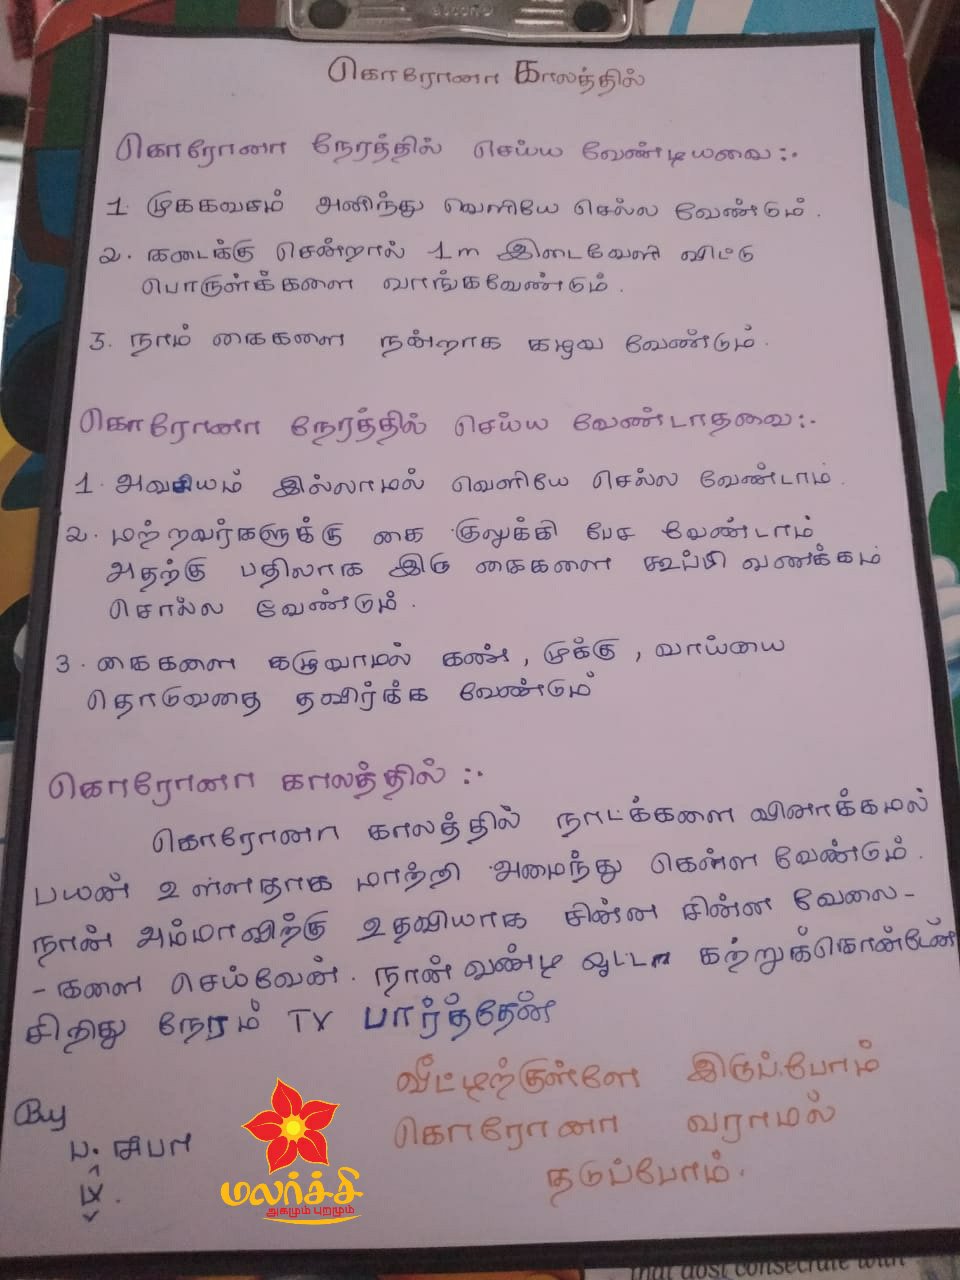 கொரோனா காலத்தில்
கொரோனா நேரத்தில் செய்ய வேண்டியவை:-
1. முககவசம் அணிந்து வெளியே செல்ல வேண்டும்.
2. கடைக்கு சென்றால் 1m இடைவேளி விட்டு
பொருள்க்களை வாங்கவேண்டும்.
3. நாம் கைகளை நன்றாக கழுவ வேண்டும்.
கொரோனா நேரத்தில் செய்ய வேண்டாதவை:-
1. அவசியம் இல்லாமல் வெளியே செல்ல வேண்டாம்.
2. மற்றவர்களுக்கு கை குலுக்கி பேச வேண்டாம்
அதற்கு பதிலாக இரு கைகளை கூப்பி வணக்கம்
சொல்ல வேண்டும்.
3. கைகளை கழுவாமல் கண், முக்கு, வாய்யை
தொடுவதை தவிர்க்க வேண்டும்
கொரோனா காலத்தில் :-
கொரோனா காலத்தில் நாட்க்களை வினாக்கமல்
பயன் உள்ளதாக மாற்றி அமைந்து கெள்ள வேண்டும்.
நான் அம்மாவிற்கு உதவியாக சின்ன சின்ன வேலை-
-களை செய்வேன். நான் வண்டி ஓட்டா கற்றுக்கொண்டேன்
சிறிது நேரம் TV பார்த்தேன்
வீட்டிற்குள்ளே இருப்போம்
கொரோனா வராமல்
தடுப்போம்.
By
ப.
IX.
மலர்ச்சி
அகமும் புறமும்
that dost consecrate with